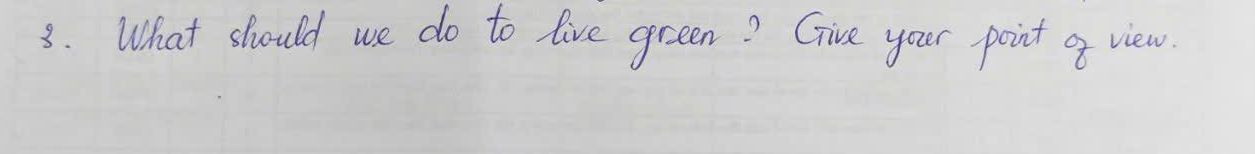 3. What should we do to live green? Give your point of view.